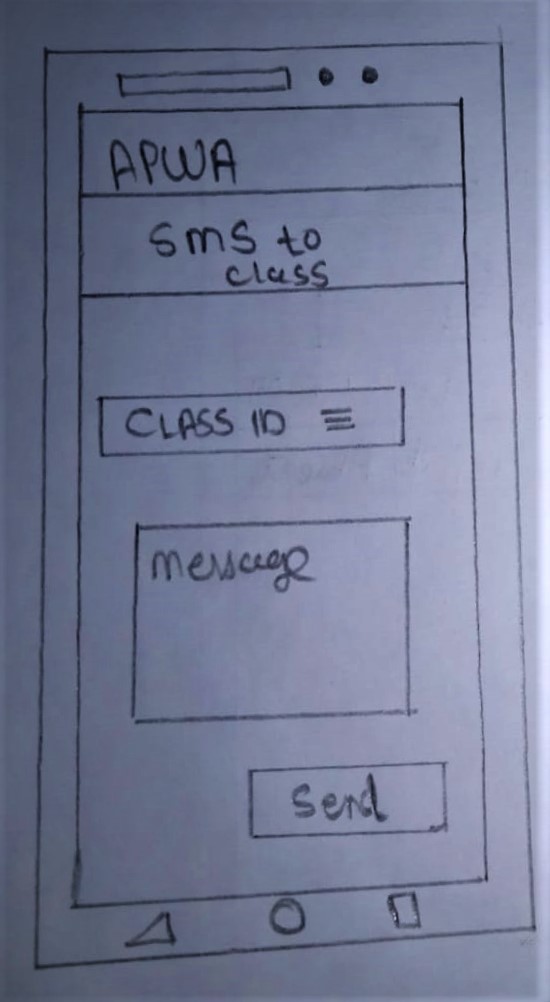 APWA
SMS to
class
CLASS ID
Message
Send